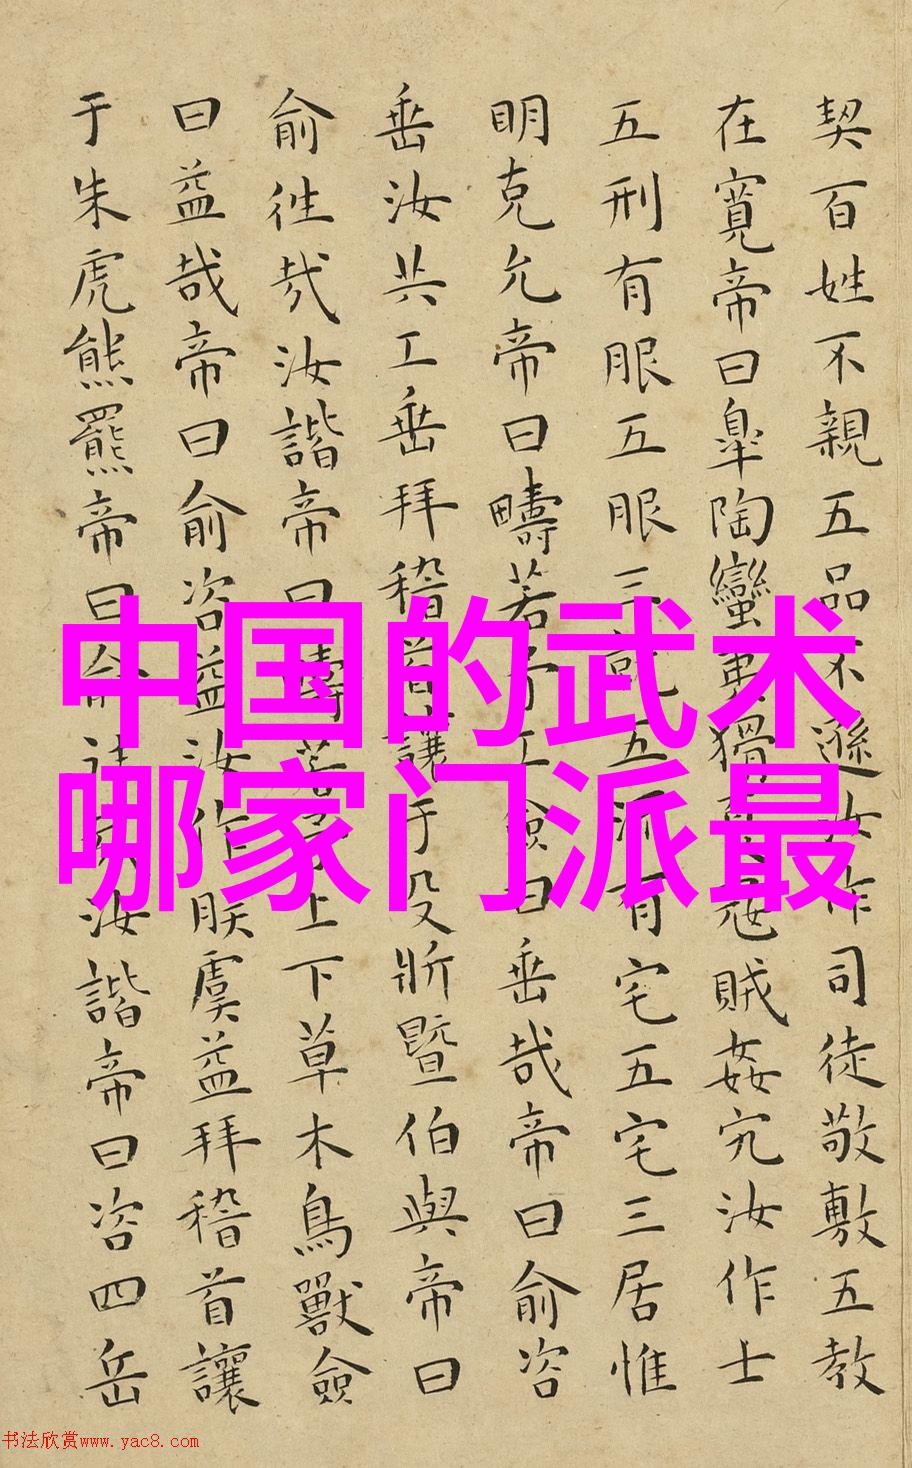 契百姓不親五品不遜汝作司徒敬敷五教
在寬帝曰皐陶蠻夷猾夏寇賊姦宄汝作士
五刑有服五服三就五流有宅五宅三居惟
明克允帝曰疇若予工僉曰垂哉帝曰俞咨
垂汝共工垂拜稽首讓于殳斨暨伯與帝曰
俞往哉汝諧帝曰疇若予上下草木鳥獸僉
曰益哉帝曰俞咨益汝作朕虞益拜稽首讓
于朱虎熊羆帝曰俞往哉汝諧帝曰咨四岳
中国的武术
哪家门派最
书法欣赏www.yac8.com